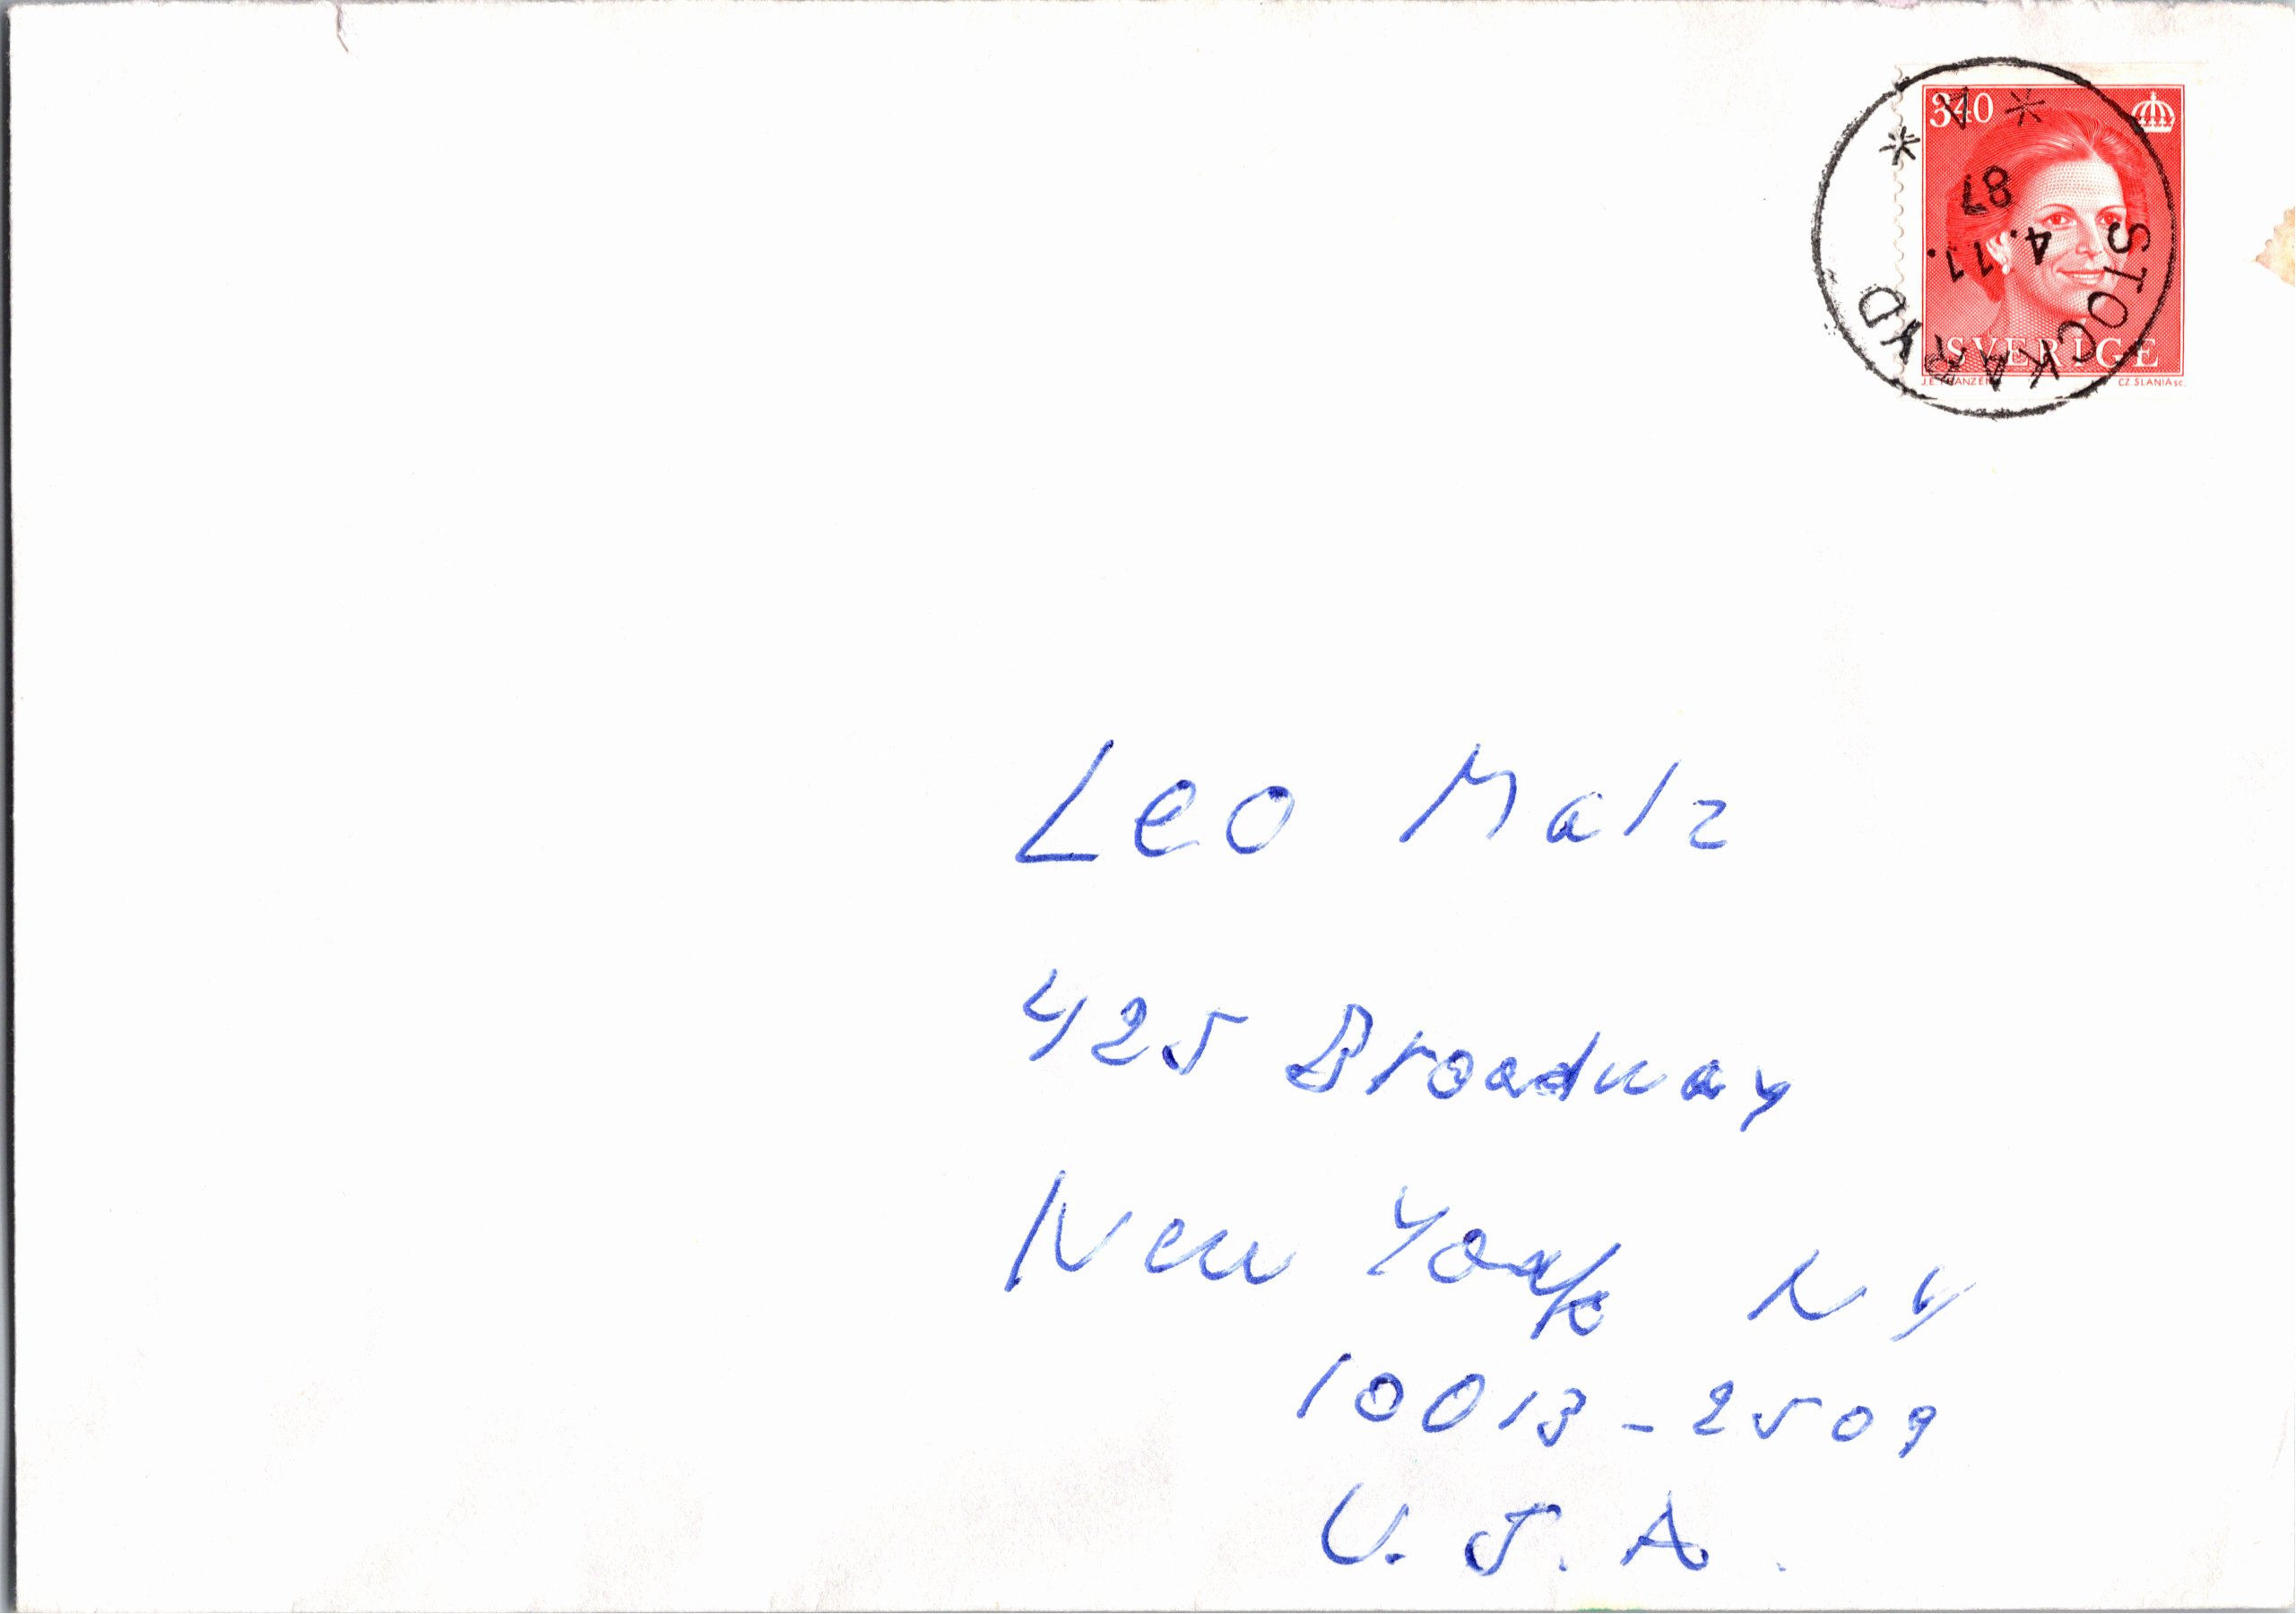 340
SVERIGE
J.E. FRANZEN
CZ.SLANIA sc.
STOCKARYD
4.11.
87
* A *
Leo Malz
425 Broadway
New York NY
10013-2509
U.S.A.